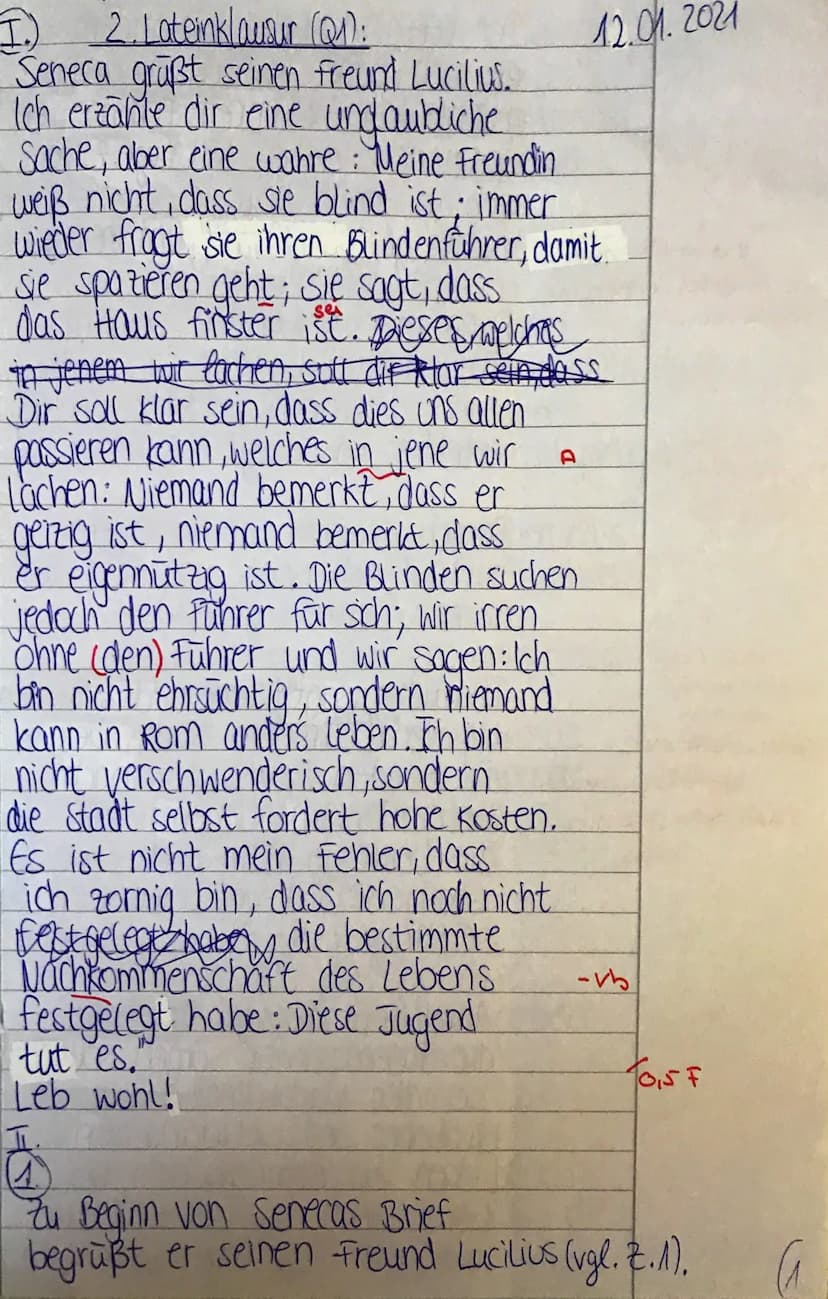 I.) 2. Lateinklausur (Q1): 12.01.2021
Seneca grüßt seinen Freund Lucilius.
Ich erzähle dir eine unglaubliche
Sache, aber eine wahre: Meine Freundin
weiß nicht, dass sie blind ist; immer
wieder fragt sie ihren Blindenführer, damit
sie spazieren geht; sie sagt, dass
sei
das Haus finster ist. Dieses, welches
in jenem wir lachen, soll dir klar sein, dass
Dir soll klar sein, dass dies uns allen
passieren kann, welches in jene wir A
lachen: Niemand bemerkt, dass er
geizig ist, niemand bemerkt, dass
er eigennützig ist. Die Blinden suchen
jedoch den Führer für sich; wir irren
ohne (den) Führer und wir sagen: Ich
bin nicht ehrsüchtig, sondern Niemand
kann in Rom anders leben. Ich bin
nicht verschwenderisch, sondern
die Stadt selbst fordert hohe Kosten.
Es ist nicht mein Fehler, dass
ich zornig bin, dass ich noch nicht
festgelegt haben, die bestimmte
Nachkommenschaft des Lebens -Vb
festgelegt habe: Diese Jugend
tut es."
Leb wohl! 0,5 F
II.
1.
Zu Beginn von Senecas Brief
begrüßt er seinen Freund Lucilius (vgl. Z.1). 1